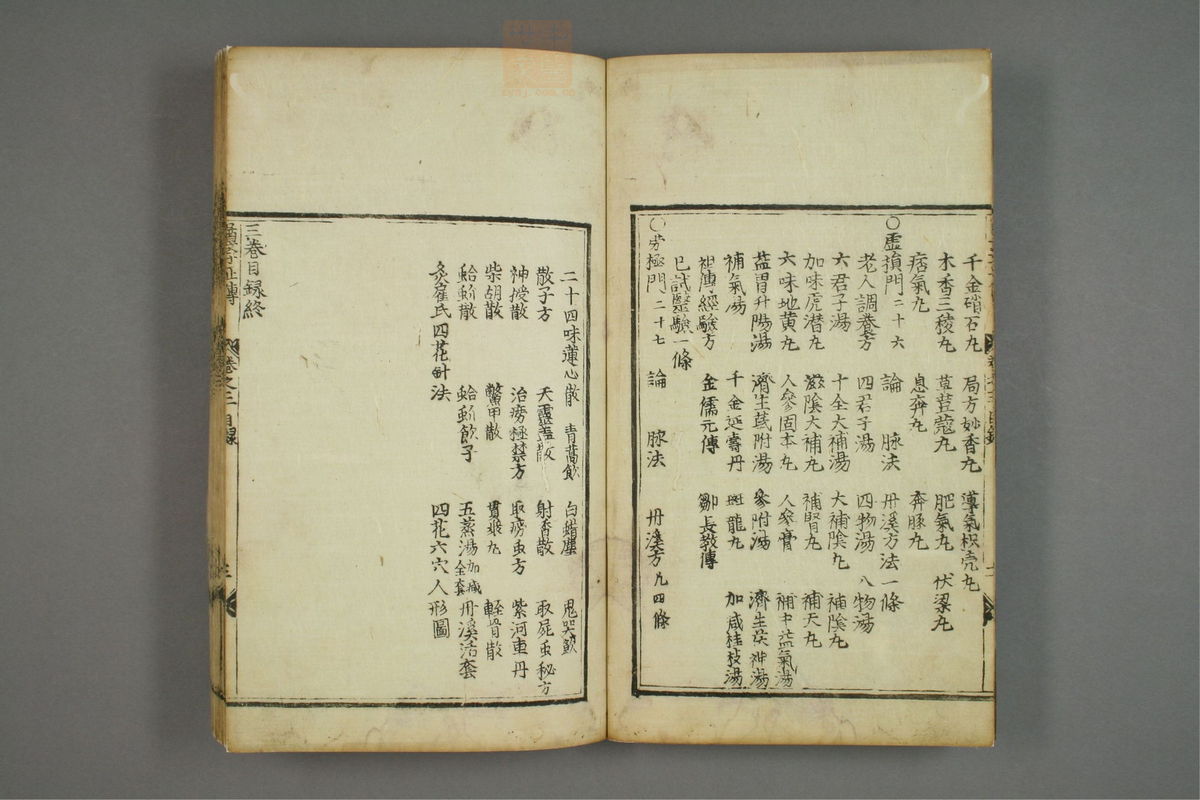 千金硝石丸 局方妙香丸 導氣枳壳丸
木香三稜丸 荳蔲丸 肥氣丸 伏梁丸
痞氣丸 息賁丸 奔豚丸
○虛損門二十六 論 脉法 丹溪方法一條
老人調養方 四君子湯 四物湯 八物湯
六君子湯 十全大補湯 大補陰丸 補陰丸
加味虎潜丸 滋陰大補丸 補腎丸 補天丸
六味地黄丸 人參固本丸 人參膏 補中益氣湯
益胃升陽湯 濟生芪附湯 參附湯 濟生茯神湯
補氣湯 千金延壽丹 斑龍丸 加减桂枝湯
祖傳經驗方 金儒元傳 鄒長教傳
已試醫驗一條
○労極門二十七 論 脉法 丹溪方凢四條
二十四味蓮心散 青蒿飲 白蠟塵 鬼哭飲
散子方 天靈蓋散 射香散 取屍虫秘方
神授散 治癆極禁方 取癆虫方 紫河車丹
柴胡散 鱉甲散 貫衆丸 輕骨散
蛤蚧散 蛤蚧飲子 五蒸湯加减全套 丹溪活套
灸崔氏四花針法 四花六穴人形圖
三巻目録終
卷之三目録
三